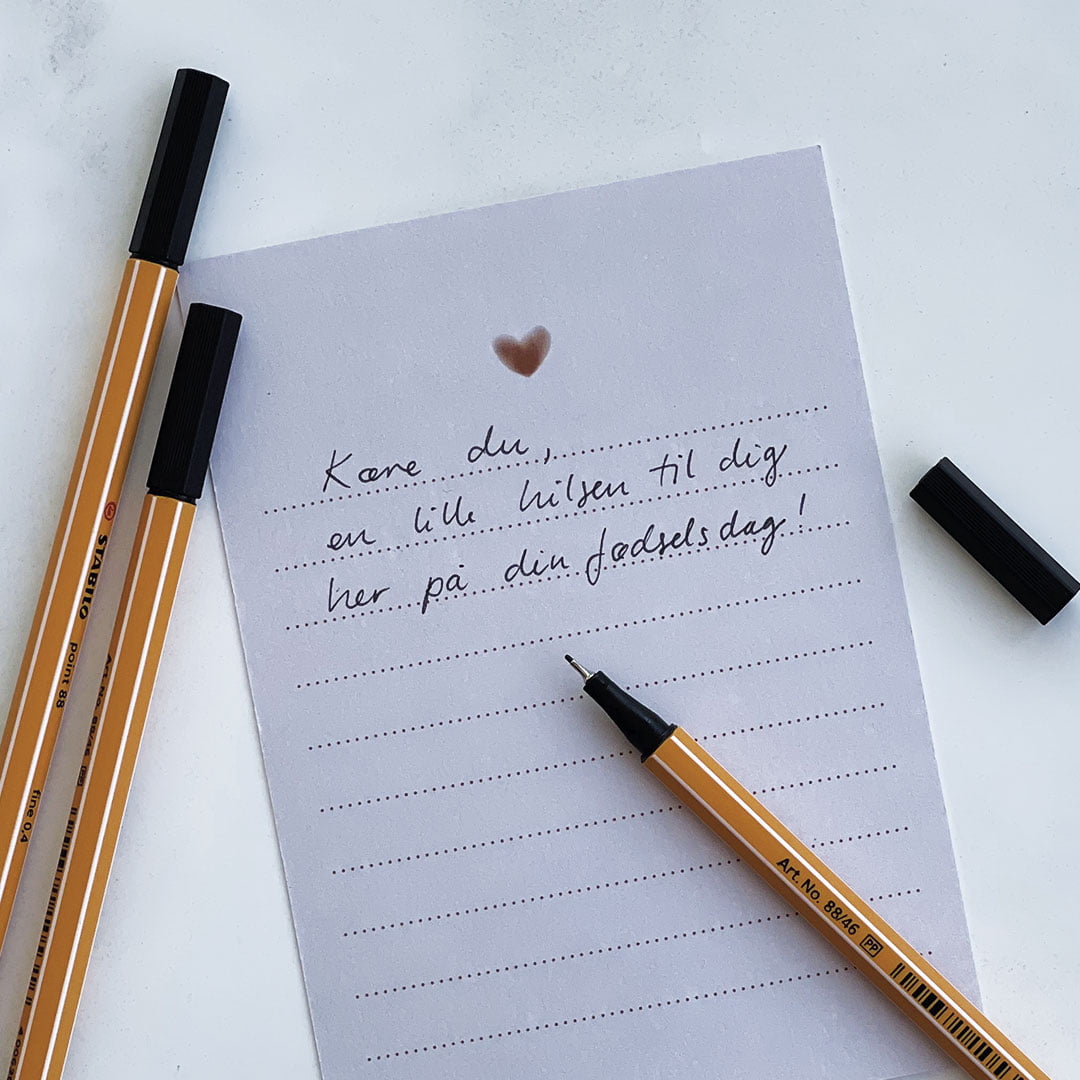 Kære du,
en lille hilsen til dig
her på din fødselsdag!
STABILO point 88 fine 0,4
Art. No. 88/46 PP
Art. No. 88/46 PP